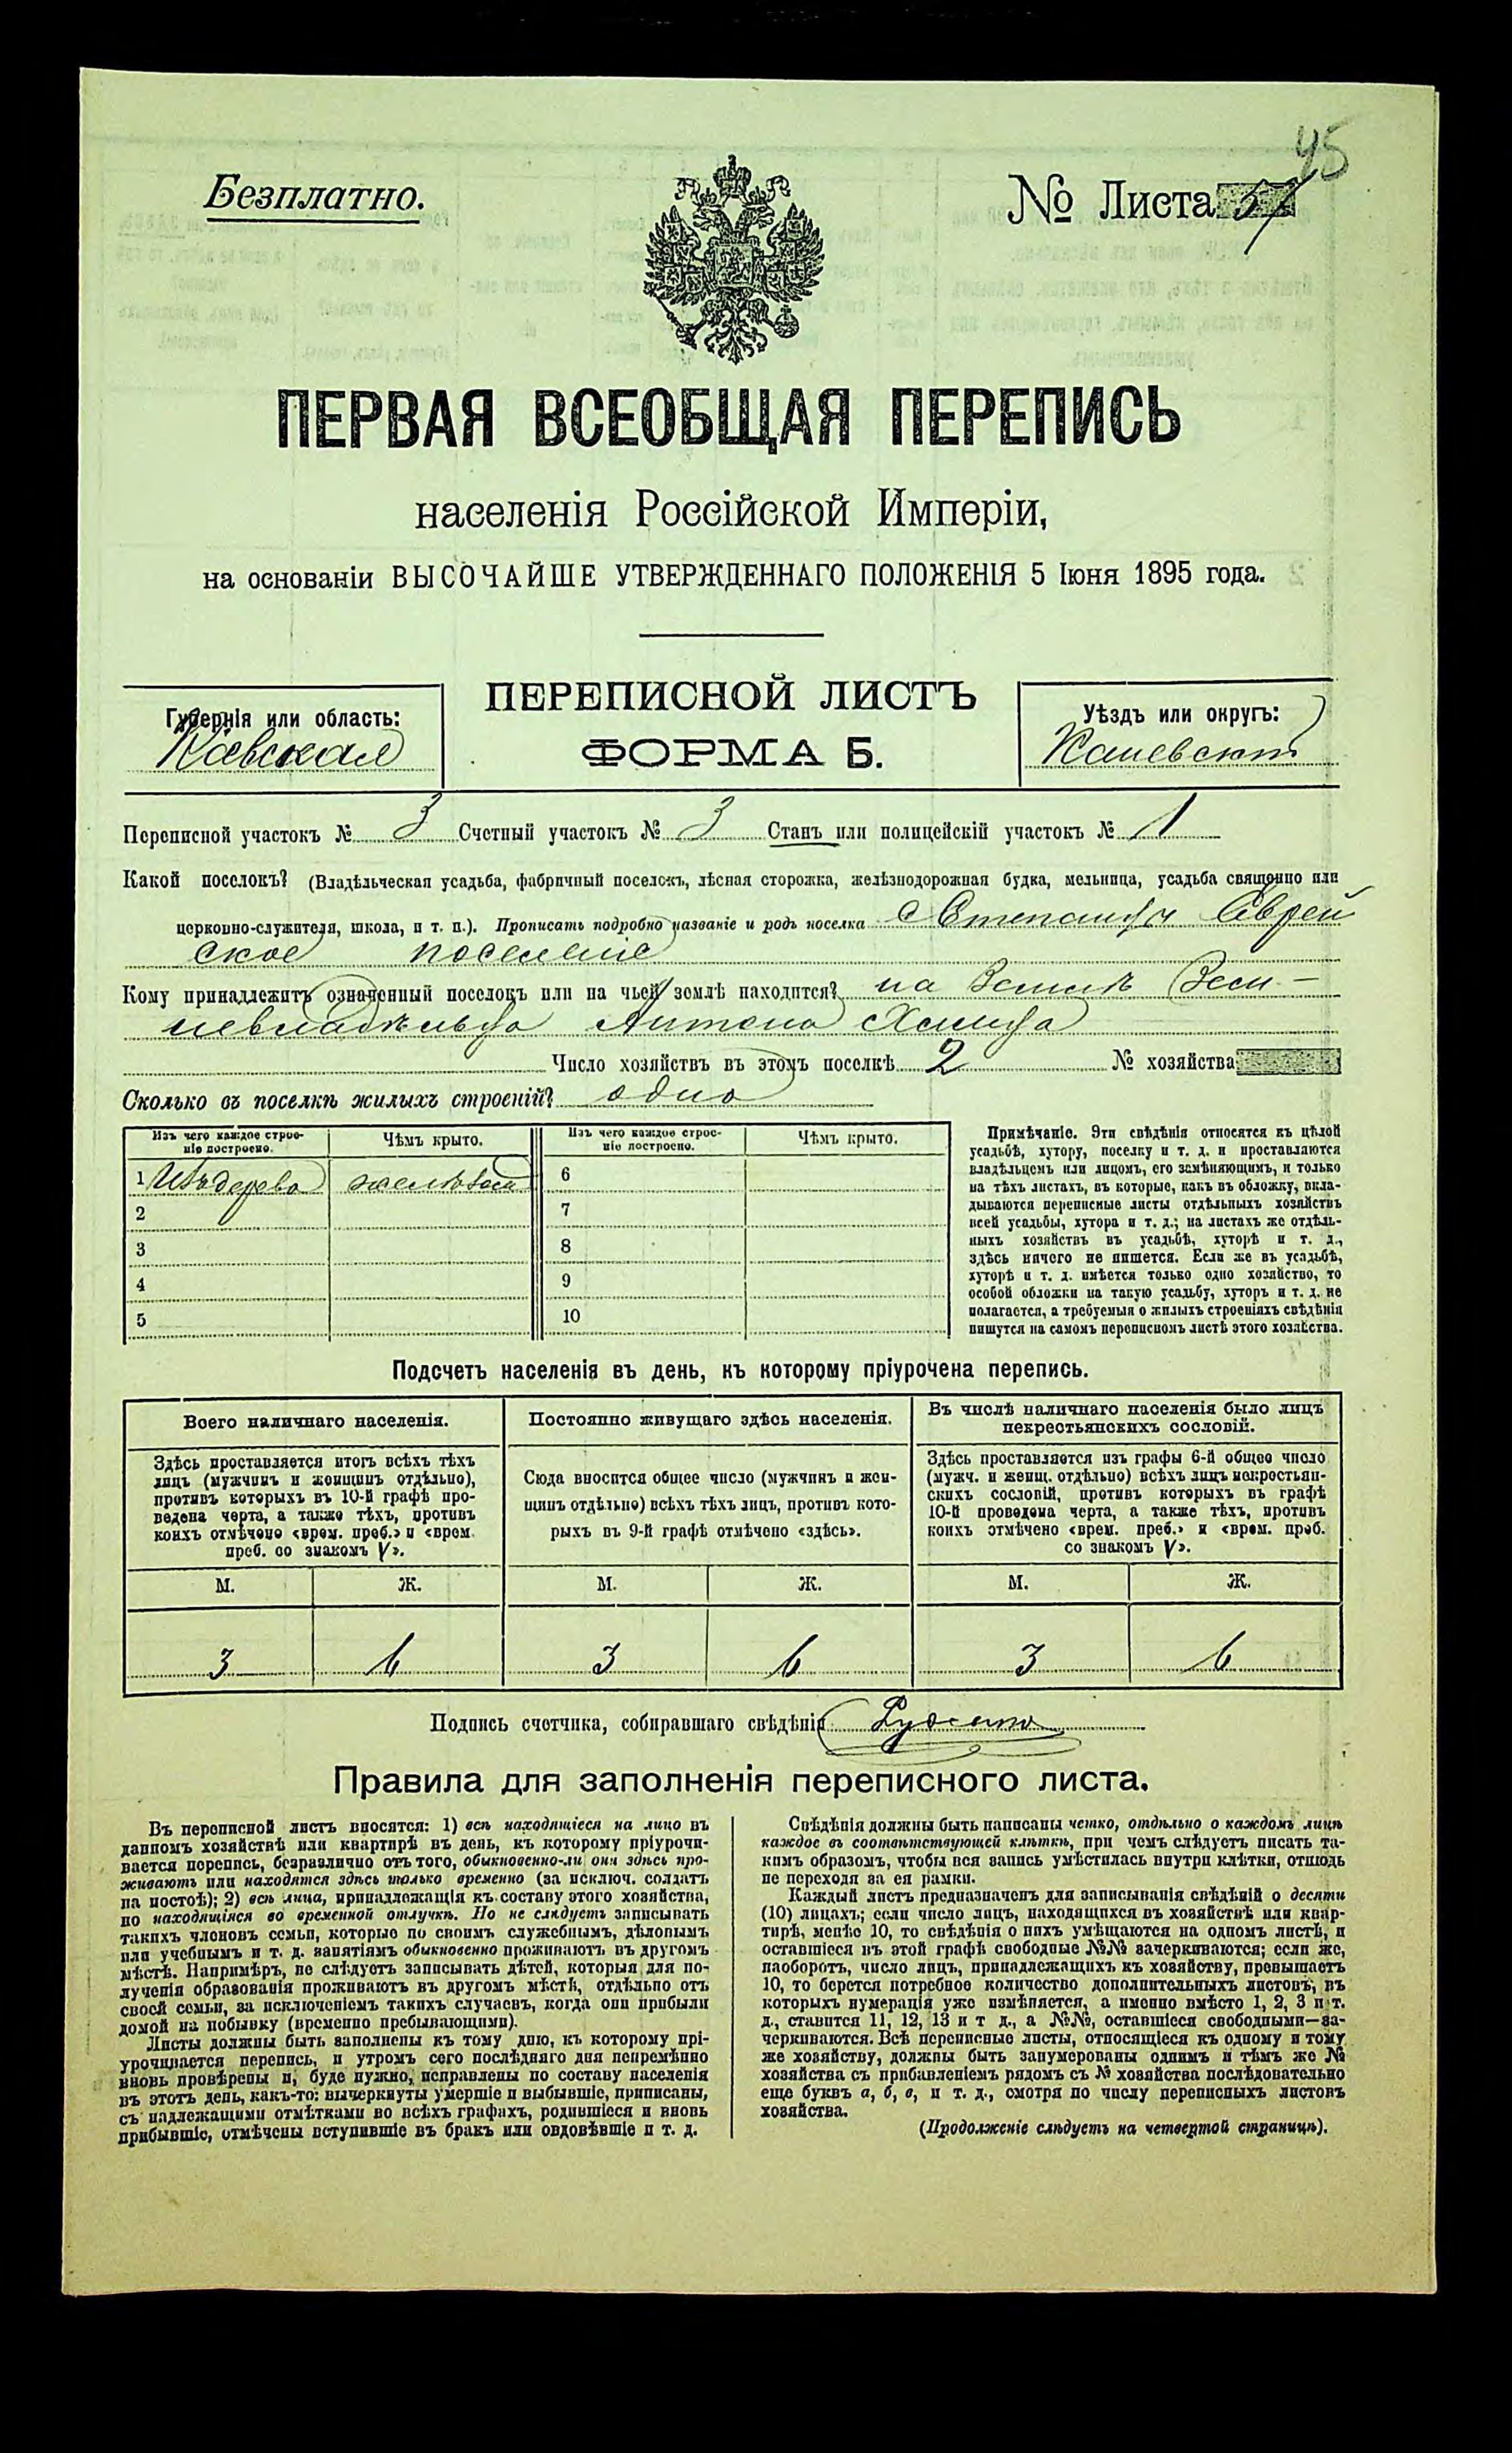 45
Безплатно.
№ Листа 57
ПЕРВАЯ ВСЕОБЩАЯ ПЕРЕПИСЬ
населенія Россійской Имперіи,
на основаніи ВЫСОЧАЙШЕ УТВЕРЖДЕННАГО ПОЛОЖЕНІЯ 5 Іюня 1895 года.
ПЕРЕПИСНОЙ ЛИСТЪ
ФОРМА Б.
Губернія или область:
Кіевская
Уѣздъ или округъ:
Каневскій
Переписной участокъ № 3 Счетный участокъ № 3 Станъ или полицейскій участокъ № 1
Какой поселокъ? (Владѣльческая усадьба, фабричный поселокъ, лѣсная сторожка, желѣзнодорожная будка, мельница, усадьба священно или
церковно-служителя, школа, и т. п.). Прописать подробно названіе и родъ поселка с Степанцы Еврей
ское поселеніе
Кому принадлежитъ означенный поселокъ или на чьей землѣ находится? на Землѣ Зем-
левладѣльца Антона
Число хозяйствъ въ этомъ поселкѣ 2 № хозяйства
Сколько въ поселкѣ жилыхъ строеній? одно
Изъ чего каждое строе-
ніе построено.
Чѣмъ крыто.
Изъ чего каждое строе-
ніе построено.
Чѣмъ крыто.
1 Изъ дерева желѣзом
2
3
4
5
6
7
8
9
10
Примѣчаніе. Эти свѣдѣнія относятся къ цѣлой
усадьбѣ, хутору, поселку и т. д. и проставляются
владѣльцемъ или лицомъ, его замѣняющимъ, и только
на тѣхъ листахъ, въ которые, какъ въ обложку, вкла-
дываются переписные листы отдѣльныхъ хозяйствъ
всей усадьбы, хутора и т. д.; на листахъ же отдѣль-
ныхъ хозяйствъ въ усадьбѣ, хуторѣ и т. д.,
здѣсь ничего не пишется. Если же въ усадьбѣ,
хуторѣ и т. д. имѣется только одно хозяйство, то
особой обложки на такую усадьбу, хуторъ и т. д. не
полагается, а требуемыя о жилыхъ строеніяхъ свѣдѣнія
пишутся на самомъ переписномъ листѣ этого хозяйства.
Подсчетъ населенія въ день, къ которому пріурочена перепись.
Всего наличнаго населенія.
Постоянно живущаго здѣсь населенія.
Въ числѣ наличнаго населенія было лицъ
некрестьянскихъ сословій.
Здѣсь проставляется итогъ всѣхъ тѣхъ
лицъ (мужчинъ и женщинъ отдѣльно),
противъ которыхъ въ 10-й графѣ про-
ведена черта, а также тѣхъ, противъ
коихъ отмѣчено «врем. преб.» и «врем.
преб. со знакомъ V».
Сюда вносится общее число (мужчинъ и жен-
щинъ отдѣльно) всѣхъ тѣхъ лицъ, противъ кото-
рыхъ въ 9-й графѣ отмѣчено «здѣсь».
Здѣсь проставляется изъ графы 6-й общее число
(мужч. и женщ. отдѣльно) всѣхъ лицъ некрестьян-
скихъ сословій, противъ которыхъ въ графѣ
10-й проведена черта, а также тѣхъ, противъ
коихъ отмѣчено «врем. преб.» и «врем. преб.
со знакомъ V».
М. Ж. М. Ж. М. Ж.
3 6 3 6 3 6
Подпись счетчика, собиравшаго свѣдѣнія
Правила для заполненія переписного листа.
Въ переписной листъ вносятся: 1) всѣ находящіеся на лицо въ
данномъ хозяйствѣ или квартирѣ въ день, къ которому пріурочи-
вается перепись, безразлично отъ того, обыкновенно-ли они здѣсь про-
живаютъ или находятся здѣсь только временно (за исключ. солдатъ
на постоѣ); 2) всѣ лица, принадлежащія къ составу этого хозяйства,
но находящіяся во временной отлучкѣ. Но не слѣдуетъ записывать
такихъ членовъ семьи, которые по своимъ служебнымъ, дѣловымъ
или учебнымъ и т. д. занятіямъ обыкновенно проживаютъ въ другомъ
мѣстѣ. Напримѣръ, не слѣдуетъ записывать дѣтей, которыя для по-
лученія образованія проживаютъ въ другомъ мѣстѣ, отдѣльно отъ
своей семьи, за исключеніемъ такихъ случаевъ, когда они прибыли
домой на побывку (временно пребывающими).
Листы должны быть заполнены къ тому дню, къ которому прі-
урочивается перепись, и утромъ сего послѣдняго дня непремѣнно
вновь провѣрены и, буде нужно, исправлены по составу населенія
въ этотъ день, какъ-то: вычеркнуты умершіе и выбывшіе, приписаны,
съ надлежащими отмѣтками во всѣхъ графахъ, родившіеся и вновь
прибывшіе, отмѣчены вступившіе въ бракъ или овдовѣвшіе и т. д.
Свѣдѣнія должны быть написаны четко, отдѣльно о каждомъ лицѣ
каждое въ соотвѣтствующей клѣткѣ, при чемъ слѣдуетъ писать та-
кимъ образомъ, чтобы вся запись умѣстилась внутри клѣтки, отнюдь
не переходя за ея рамки.
Каждый листъ предназначенъ для записыванія свѣдѣній о десяти
(10) лицахъ; если число лицъ, находящихся въ хозяйствѣ или квар-
тирѣ, менѣе 10, то свѣдѣнія о нихъ умѣщаются на одномъ листѣ, и
оставшіеся въ этой графѣ свободные №№ зачеркиваются; если же,
наоборотъ, число лицъ, принадлежащихъ къ хозяйству, превышаетъ
10, то берется потребное количество дополнительныхъ листовъ, въ
которыхъ нумерація уже измѣняется, а именно вмѣсто 1, 2, 3 и т.
д., ставится 11, 12, 13 и т д., а №№, оставшіеся свободными—за-
черкиваются. Всѣ переписные листы, относящіеся къ одному и тому
же хозяйству, должны быть занумерованы однимъ и тѣмъ же №
хозяйства съ прибавленіемъ рядомъ съ № хозяйства послѣдовательно
еще буквъ а, б, в, и т. д., смотря по числу переписныхъ листовъ
хозяйства.
(Продолженіе слѣдуетъ на четвертой страницѣ).